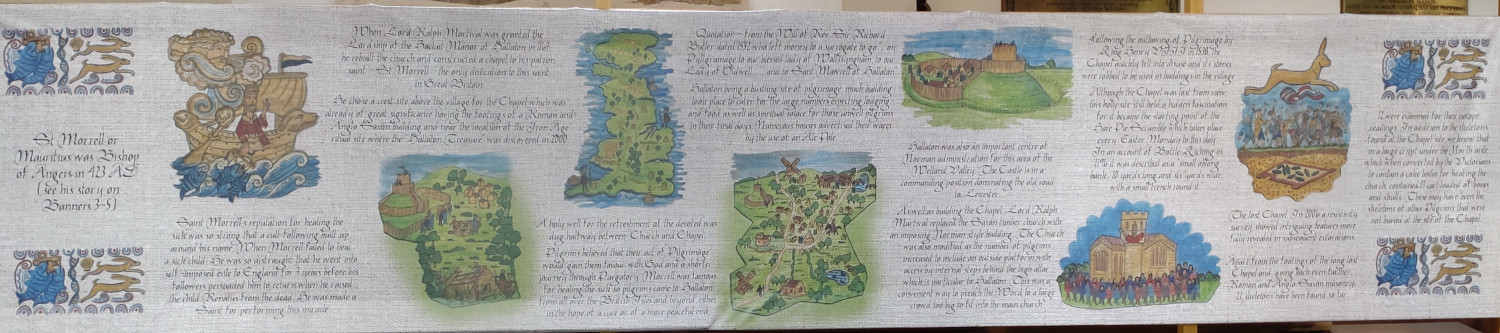 St Morrell or
Mauritius was Bishop
of Angers in 423 AD
(see his story on
Banners 3-5)
Saint Morrell's reputation for healing the
sick was so strong that a cult following built up
around his name. When Morrell failed to heal
a sick child; He was so distraught that he went into
self imposed exile to England for 7 years before his
followers persuaded him to return when he raised
the child Renatus from the dead. He was made a
Saint for performing this miracle.
When Lord Ralph Martival was granted the
Lordship of the Hackat Manor of Hallaton in
he rebuilt the church and constructed a chapel to his patron
saint St Morrell the only dedication to this saint
in Great Britain.
He chose a crest site above the village for the Chapel which was
already of great significance having the footings of a Roman and
Anglo Saxon building and near the location of the Iron Age
ritual site where the Hallaton Treasure was discovered in 2000
A holy well for the refreshment of the devoted was
dug halfway between Church and Chapel.
Pilgrims believed that their act of Pilgrimage
would gain them favour with God and a shorter
journey through Purgatory. Morrell was famous
for healing the sick so pilgrims came to Hallaton
from all over the British Isles and beyond, either
in the hope of a cure or of a more peaceful end.
Quotation - from the Will of Rev. Sir Richard
Butler dated 1532 who left money to a surrogate to go on
Pilgrimage to our blessed lady of Wallsingham to our
Lady of Oldwell and to Saint Mawrell of Hallaton
Hallaton being a bustling site of pilgrimage, much building
took place to cater for the large numbers expecting lodging
and food as well as spiritual solace for those unwell pilgrims
in their final days. Numerous houses advertised their wares
by the use of an Ale Pole.
Hallaton was also an important centre of
Norman administration for this area of the
Welland Valley. The Castle is in a
commanding position dominating the old road
to Leicester
As well as building the Chapel, Lord Ralph
Martival replaced the Saxon timber church with
an imposing Norman style building. The Church
was also modified as the number of pilgrims
increased to include an outside platform with
access by internal steps behind the high altar
which is particular to Hallaton. This was a
convenient way to preach the Word to a large
crowd too big to fit into the main church
Following the outlawing of Pilgrimage by
King Henry VIII in 1538 the
Chapel quickly fell into disuse and its stones
were robbed to be used in buildings in the village
Although the Chapel was lost from view
this holy site still held a hidden fascination
for it became the starting point of the
Hare Pie Scramble which takes place
every Easter Monday to this day.
In an account of Bottle Kicking in
it was described as a "small oblong
bank, 10 yards long and six yards wide,
with a small trench round it."
The lost Chapel. In 2006 a resistivity
survey showed intriguing features more
fully revealed in subsequent excavations.
Apart from the footings of the long lost
Chapel and going back even further,
Roman and Anglo Saxon
11 skeletons have been found so far.
11 were exhumed for their isotope
readings. In addition to the skeletons
found at the Chapel site, we know that
in a large crypt under the North aisle
which when converted by the Victorians
to contain a coke boiler for heating the
church, contained 11 cart loads of bones
and skulls. These may have been the
skeletons of other Pilgrims that were
not buried at the site of the Chapel.